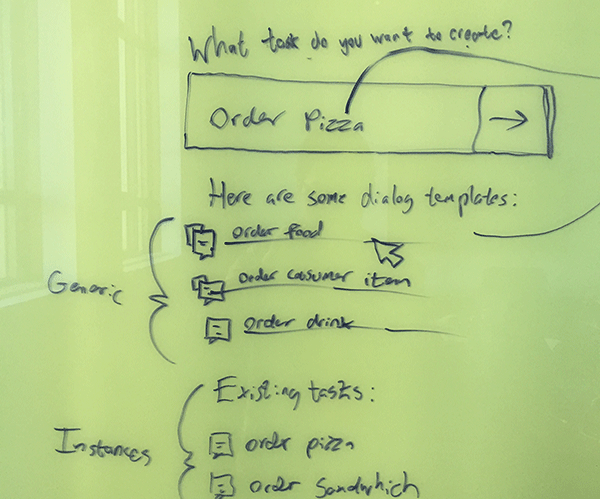 What task do you want to create?
Order Pizza
Here are some dialog templates:
Generic
order food
order consumer item
order drink
Existing tasks:
Instances
order pizza
order sandwhich